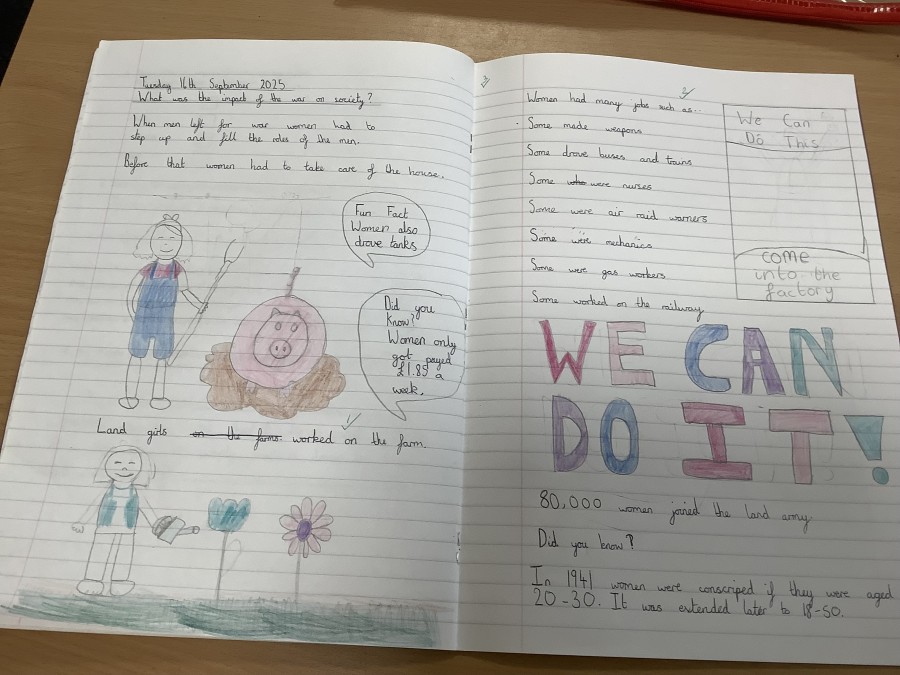 Tuesday 16th September 2025
What was the impact of the war on society?
When men left for war women had to
step up and fill the roles of the men.
Before that women had to take care of the house.
Fun Fact
Women also
drove tanks
Did you
know?
Women only
got payed
£1.85 a
week.
Land girls on the farms worked on the farm.
Women had many jobs such as...
Some made weapons
Some drove buses and trains
Some who were nurses
Some were air raid warners
Some were mechanics
Some were gas workers
Some worked on the railway
We Can
Do This
come
into the
factory
WE CAN
DO IT!
80,000 women joined the land army
Did you know?
In 1941 women were conscriped if they were aged
20-30. It was extended later to 18-50.